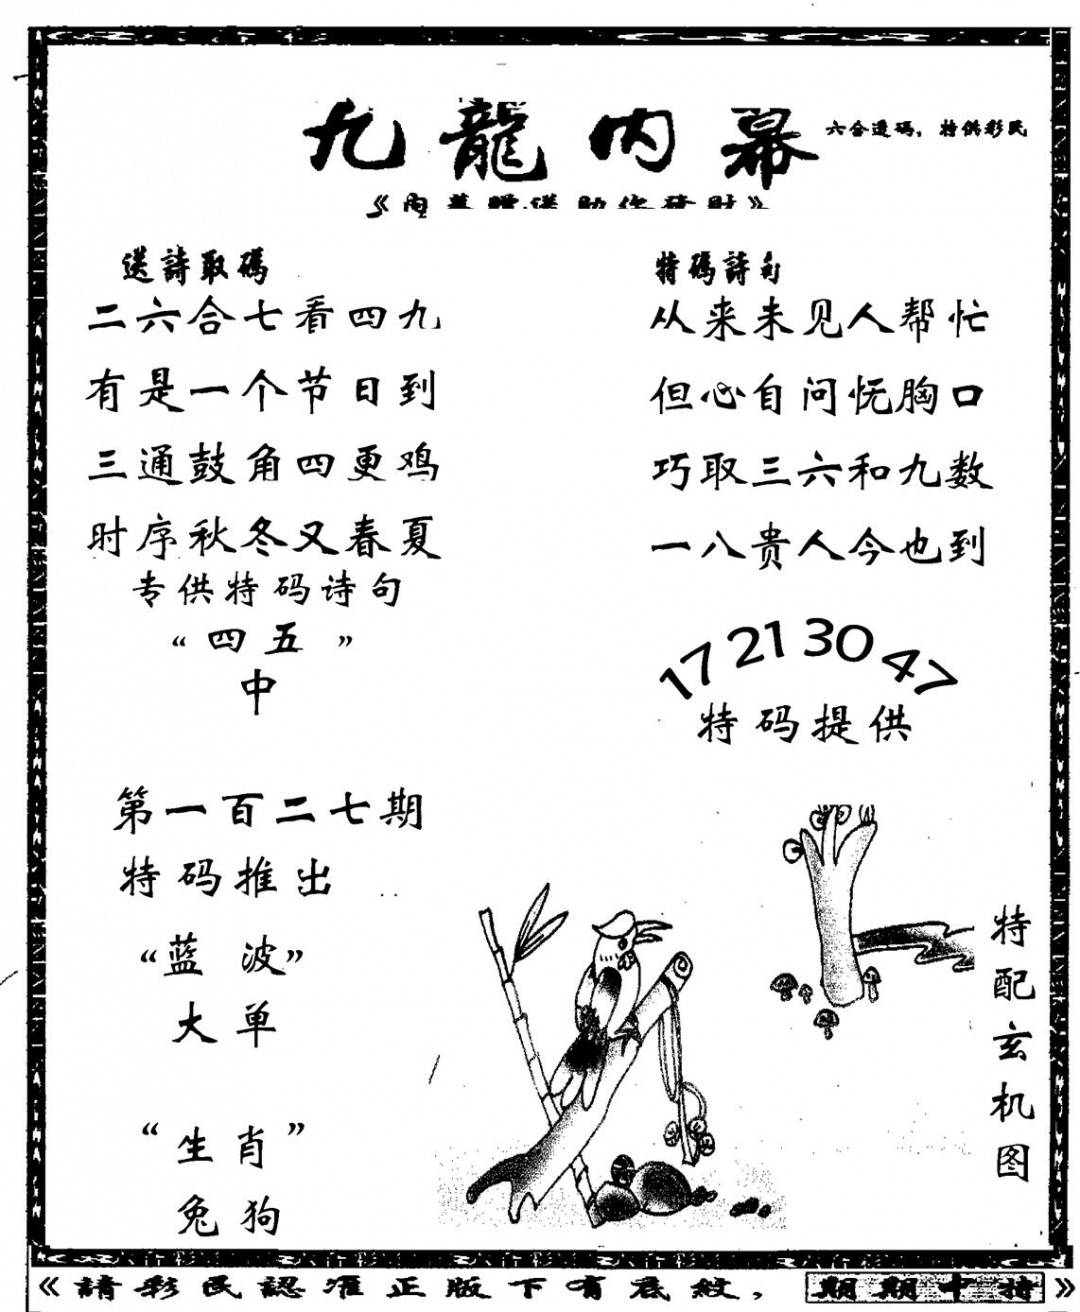 九龍内幕
六合透码，特供彩民
《内幕赠送助你发财》
送詩取碼
二六合七看四九
有是一个节日到
三通鼓角四更鸡
时序秋冬又春夏
专供特码诗句
“四五”
中
特碼詩句
从来未见人帮忙
但心自问怃胸口
巧取三六和九数
一八贵人今也到
17 21 30 47
特码提供
第一百二七期
特码推出
“蓝波”
大单
“生肖”
兔狗
特配玄机图
《請彩民認准正版下有底紋，期期中特》